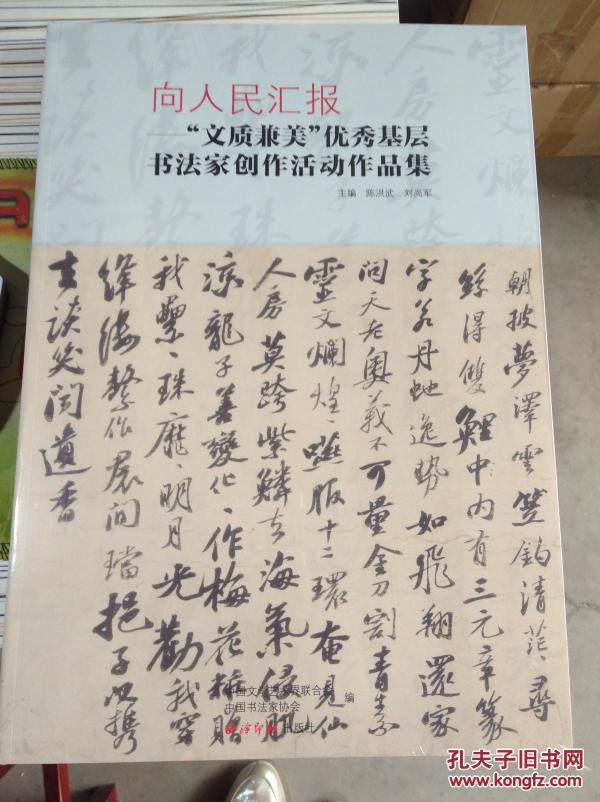 向人民汇报
——“文质兼美”优秀基层
书法家创作活动作品集
主编 陈洪武 刘尚军
朝披夢澤雲笠釣清茫、尋
絲得雙鯉中内有三元章篆
字若丹虵逸勢如飛翔還家
問天老奥義不可量金刀割青素
靈文爛煌、嚥服十二環奄見仙
人房莫跨紫鱗去海氣侵肌
涼龍子善變化、作梅花粧贈
我纍、珠靡、明月光勸我穿
絳縷繫作裙間璫挹子以攜
去談笑聞遺香
中国文学艺术界联合会
中国书法家协会
编
西泠印社出版社
孔夫子旧书网
www.kongfz.com